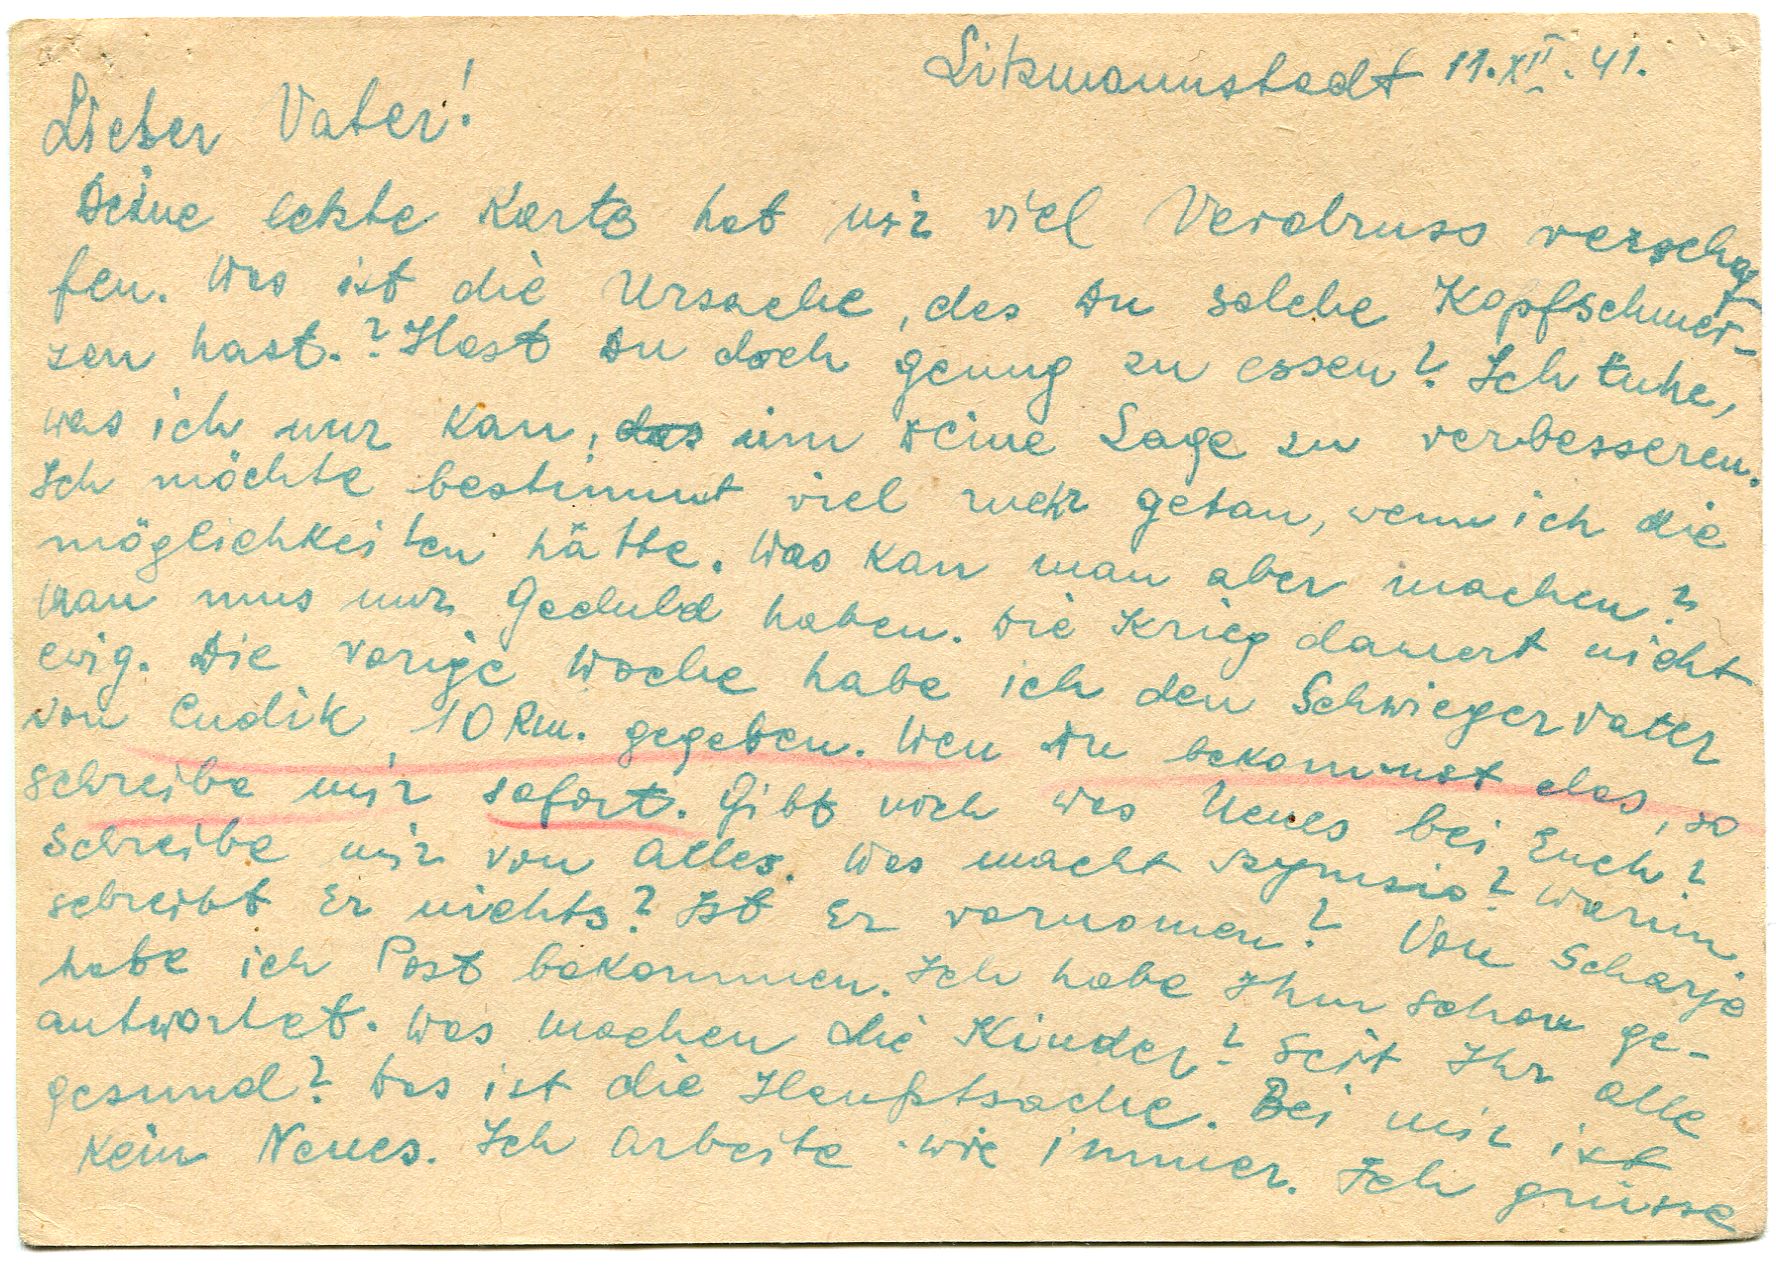 Litzmannstadt 11.XII.41.
Lieber Vater!
Deine letzte Karte hat mir viel Verdruss verschaf-
fen. Was ist die Ursache, das Du solche Kopfschmer-
zen hast.? Hast Du doch genug zu essen? Ich tuhe,
was ich nur kan, das um Deine Lage zu verbesseren.
Ich möchte bestimmt viel mehr getan, wenn ich die
möglichkeiten hätte. Was kan man aber machen?
Man mus nur Geduld haben. Die Krieg dauert nicht
ewig. Die vorige Woche habe ich den Schwiegervater
von Cudik, 10 Rm. gegeben. Wen Du bekommst das, so
schreibe mir sofort. Gibt noch was Neues bei Euch?
Schreibe mir von alles. Was macht Szymsio? Warum
schreibt Er nichts? Ist Er vornomen? Von Scharje
habe ich Post bekommen. Ich habe Ihm schon ge-
antwortet. Was machen die Kinder? Seit Ihr alle
gesund? Das ist die Hauptsache. Bei mir ist
kein Neues. Ich arbeite wie immer. Ich grüsse